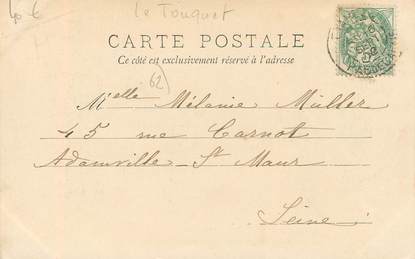 40 €
Le Touquet
CARTE POSTALE
Ce côté est exclusivement réservé à l'adresse
62
Melle Mélanie Müller
45 rue Carnot
Adamville - St Maur
Seine